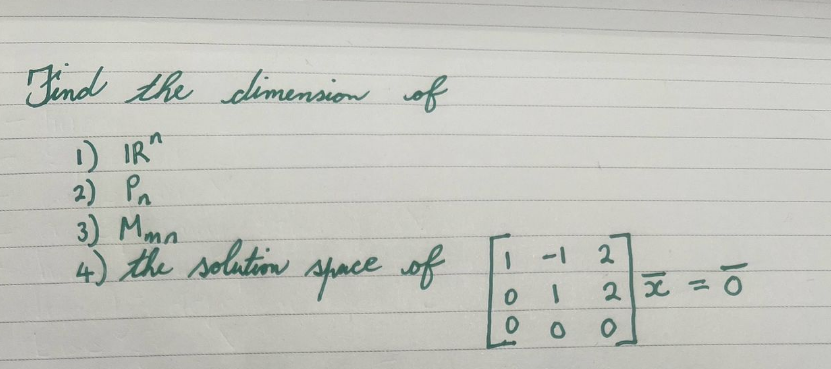 Find the dimension of
1) ℝⁿ
2) Pₙ
3) Mₘₙ
4) the solution space of [1 -1 2; 0 1 2; 0 0 0] x̅ = 0̅